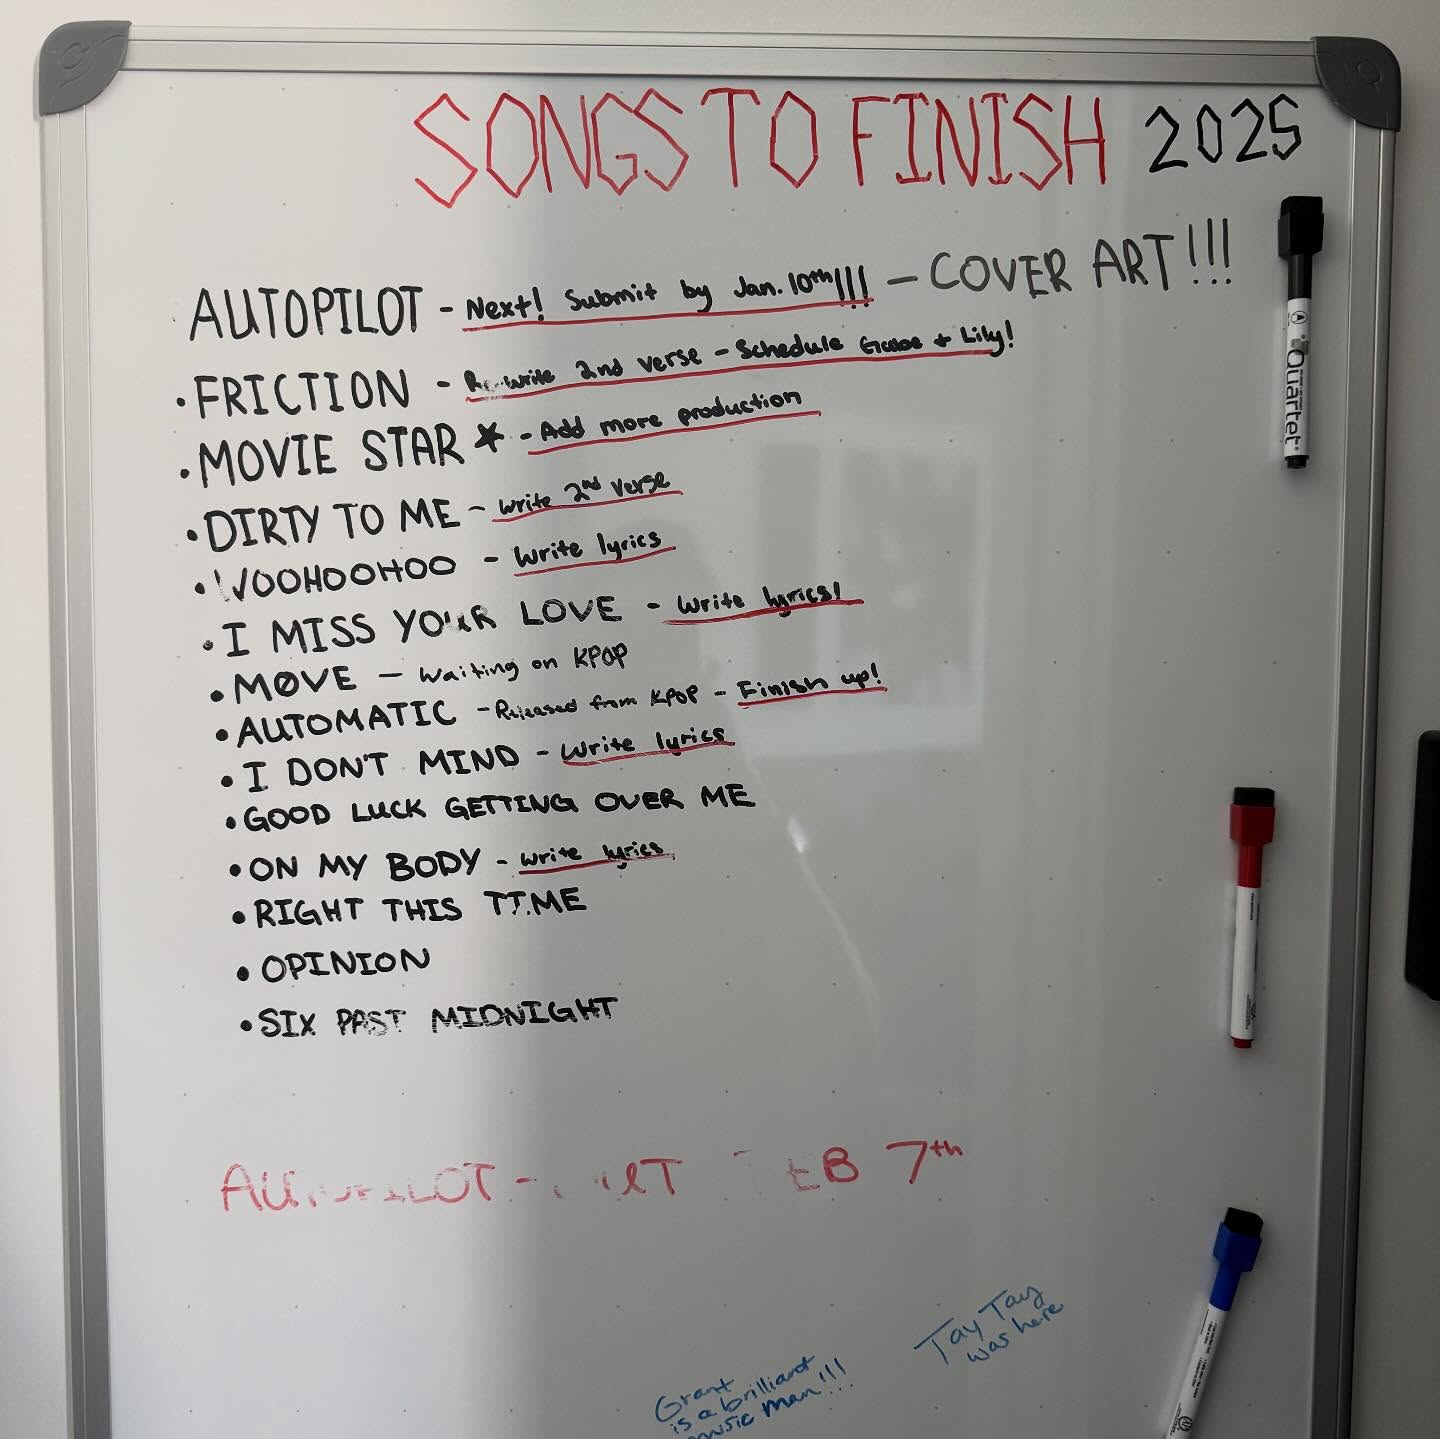 SONGS TO FINISH 2025
AUTOPILOT - Next! Submit by Jan. 10th!!! - COVER ART!!!
• FRICTION - Re-write 2nd verse - Schedule Gabe + Lily!
• MOVIE STAR ★ - Add more production
• DIRTY TO ME - write 2nd verse
• WOOHOOHOO - write lyrics
• I MISS YOUR LOVE - write lyrics!
• MØVE - Waiting on KPOP
• AUTOMATIC - Released from KPOP - Finish up!
• I DON'T MIND - write lyrics
• GOOD LUCK GETTING OVER ME
• ON MY BODY - write lyrics
• RIGHT THIS TIME
• OPINION
• SIX PAST MIDNIGHT
AUTOPILOT - FEB 7th
Tay Tay
was here
Grant
is a brilliant
music man!!!
Quartet